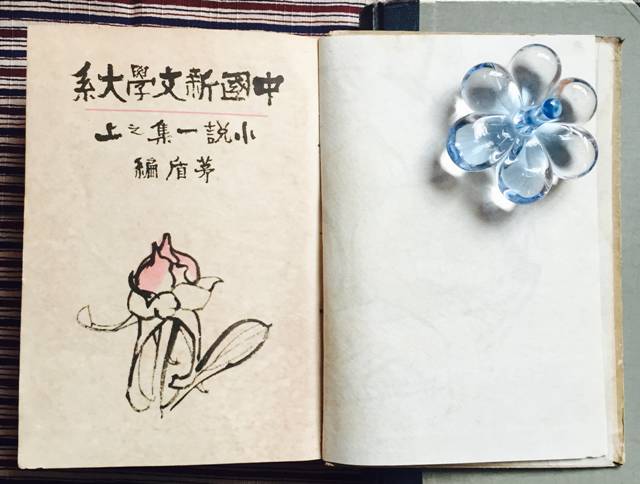 中國新文學大系
小說一集之上
茅盾編